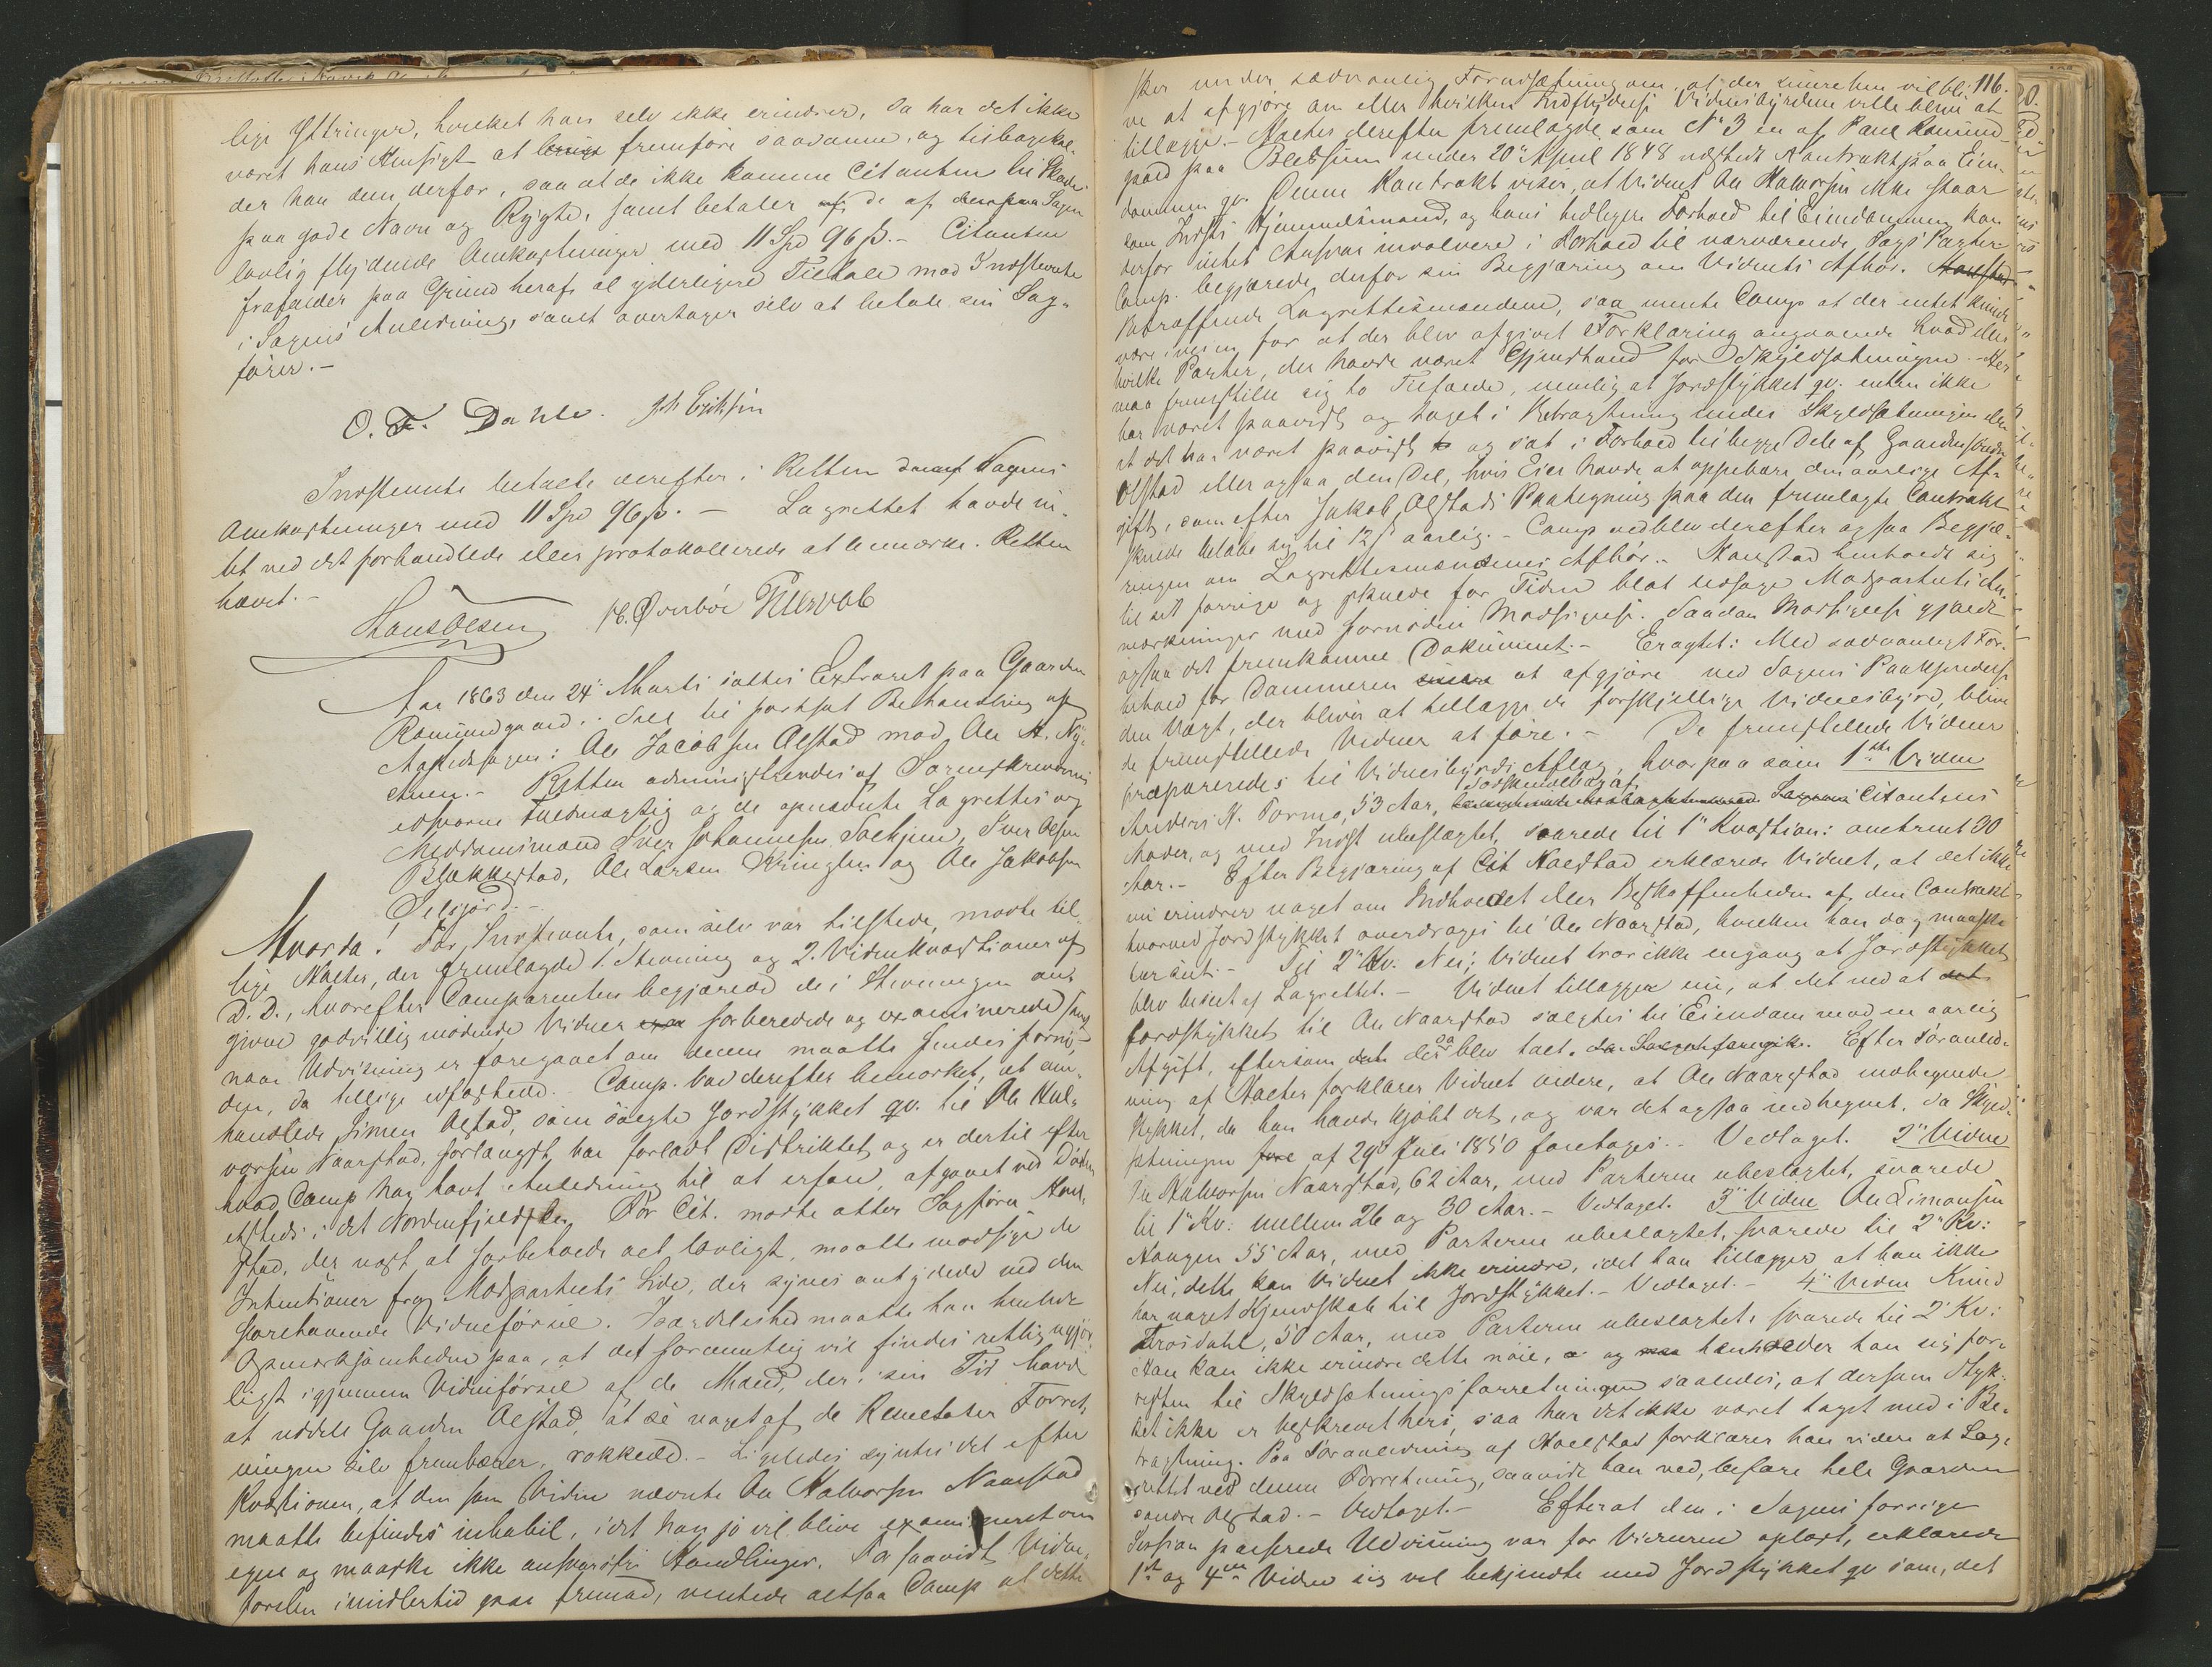 lige Yttringer, hvilket han selv ikke erindrer, da har det ikke
været hans Hensigt at fremføre saadanne, og tilbagekal-
der han dem derfor, saa at de ikke komme Citanten til Skade
paa gode Navn og Rygte, samt betaler de af Sagen
lovlig flydende Omkostninger med 11 Spd 96 s. – Citanten
frafalder paa Grund heraf al yderligere Tiltale mod Indstevnte
i Sagens Anledning, samt overtager selv at betale sin Sag-
fører. –
O. F. Dahle. Joh Eriksen
Indstevnte betalte derefter i Retten Sagens
Omkostninger med 11 Spd 96 s. – Lagrettet havde in-
tet ved det forhandlede eller protokollerede at bemærke. Retten
hævet. –
Hans Olsen
Aar 1863 den 24de Marts sattes Extraret paa Gaarden
Romundgaard i Sell til fortsat Behandling af
Aastedssagen: Ole Jacobsen Olstad mod Ole H. Ny-
. – Retten administreredes af Sorenskriverens
edsvorne Fuldmægtig og de opnævnte Lagrettes og
Meddomsmænd Iver Johannesen Solhjem, Iver Olsen
Blakkestad, Ole Larsen Kringlen og Ole Jakobsen
Selsjord. –
Hvorda! For Indstevnte, som selv var tilstede, mødte til-
lige Aalter, der fremlagde 1. Stevning og 2. Vidnekvæstioner af
D. D., hvorefter Comparenten begjærede de i Stevningen an-
givne godvillig mødende Vidner forberedede og examinerede, samt
naar Udvisning er foregaaet om denne maatte findes fornø-
den, da tillige edfæstede. Comp. bad derefter bemærket, at om-
handlede Simen Olstad, som solgte Jordstykket qv. til Ole Hal-
vorsen Naarstad, forlængst har forladt Distriktet og er dertil efter
hvad Comp har havt Anledning til at erfare, afgaaet ved Døden
etsteds i det Nordenfjeldske. For Cit. mødte atter Sagfører Aal-
stad, der næst at forbeholde alt lovligt, maatte modsige de
Intentioner fra Modpartiets Side, der synes antydede ved den
forehavende Vidneførsel. Isærdeleshed maatte han henlede
Opmærksomheden paa, at det forementlig vil findes rettlig ugjør-
ligt igjennem Vidneførsel af de Mænd, der i sin Tid havde
at uddele Gaarden Olstad, at se noget af de Resultater Forret-
ningen selv frembærer, rokkede. – Ligeledes syntes det efter
Kvæstionen, at den som Vidne nævnte Ole Halvorsen Naarstad
maatte befindes inhabil, idet han jo vil blive examineret om
egne og maaske ikke ansvarsfri Handlinger. For saavidt Vidne-
førslen imidlertid paa fremad, ventede altsaa Comp at dette
116.
sker under sædvanlig Forudsætning om, at der senerehen vil bli-
ve at afgjøre om eller hvilken Indflydelse Vidnesbyrdene ville blive at
tillægge. – Aalter derefter fremlagde som No 3 en af Paul Romund-
gaard paa Blessum under 20de April 1848 udstedt Kontrakt paa Eien-
dommen qv. Denne Kontrakt viser, at Vidnet Ole Halvorsen ikke staar
som Indsts Hjemmelsmand, og hans tidligere Forhold til Eiendommen kan
derfor intet Ansvar involvere i Forhold til nærværende Sags Parter.
Comp. begjærede derfor sin Begjæring om Vidnets Afhør.
Betræffende Lagrettesmændene, saa mente Comp at der intet kunde
være iveien for at der blev afgivet Forklaring angaaende hvad eller
hvilke Parter, der havde været Gjenstand for Skyldsætningen. – Her
maa fremstille sig to Tilfælde, nemlig at Jordstykket qv. enten ikke
har været paavist og taget i Betragtning under Skyldsætningen eller
at det har været paavist og sat i Forhold til begge Dele af Gaarden søndre
Olstad eller ogsaa den Del, hvis Eier havde at oppebære den aarlige Af-
gift, som efter Jakob Olstads Paategning paa den fremlagte Contrakt
skulde beløbe sig til 12 s aarlig. – Comp vedblev derefter ogsaa Begjæ-
ringen om Lagrettesmændenes Afhør. – Aalstad henholdt sig
til sit forrige og skulde for Tiden blot ledsage Modpartiets An-
mærkninger med fornøden Modsigelse. Saadan Modsigelse gjældt
ogsaa det fremkomne Dokument. – Eragtet: Med sædvanligt For-
behold for Dommeren at afgjøre ved Sagens Paakjendelse
den Vægt, der bliver at tillægge de forskjellige Vidnesbyrd, blive
de fremstillede Vidner at føre. – De fremstillede Vidner
præpareredes til Vidnesbyrds Aflæg, hvorpaa som 1ste Vidne
Anders N. Formo, 53 Aar, Citantens
Moder, og med Indst ubeslægtet, svarede til 1ste Kvæstion: omtrent 30
Aar. – Efter Begjæring af Cit Aalstad erklærede Vidnet, at det ikke
nu erindrer noget om Indholdet eller Beskaffenheden af den Contrakt
hvorved Jordstykket overdroges til Ole Naarstad, hvilken han dog maaske
har seet. – Til 2det Kv. Nei; Vidnet tror ikke engang at Jordstykket
blev beseet af Lagrettet. – Vidnet tillægger nu, at det ved at
Jordstykket til Ole Naarstad solgtes til Eiendom mod en aarlig
Afgift, eftersom der da blev talt. Efter Foranled-
ning af Aalter forklarer Vidnet videre, at Ole Naarstad indhegnede
Stykket, da han havde kjøbt det, og var det ogsaa indhegnet, da Skyld-
sætningen af 29de Juli 1850 foretoges. – Vedtaget. 2det Vidne
Ole Halvorsen Naarstad, 62 Aar, med Parterne ubeslægtet, svarede
til 1ste Kv: mellem 26 og 30 Aar. – Vedtaget. 3die Vidne Ole Simonsen
Haugen 55 Aar, med Parterne ubeslægtet, svarede til 2det Kv:
Nei, dette kan Vidnet ikke erindre, idet han tillægger at han ikke
har noget Kjendskab til Jordstykket. – Vedtaget. – 4de Vidne Knud
Frosdahl, 50 Aar, med Parterne ubeslægtet, svarede til 2det Kv:
Han kan ikke erindre dette nøie, og henholder han sig for-
resten til Skyldsætningsforretningen saaledes, at dersom Styk-
ket ikke er beskrevet heri, saa har det ikke været taget med i Be-
tragtning. Paa Foranledning af Aalstad forklarer han videre at Lag-
rettet ved denne Forretning, saavidt han ved, befarede hele Gaarden
søndre Olstad. – Vedtaget. – Efterat den i Sagens forrige
Session passerede Udvisning var for Vidnerne oplæst, erklærede
1ste og 4de Vidne sig vel bekjendte med Jordstykket qv som, det